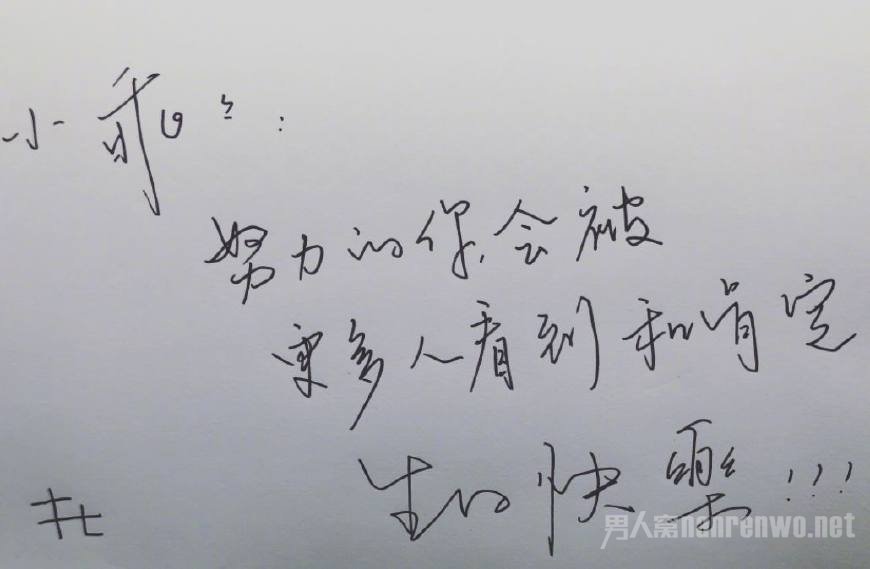 小乖：
努力的你，会被
更多人看到和肯定
生日快樂!!!
男人窝nanrenwo.net